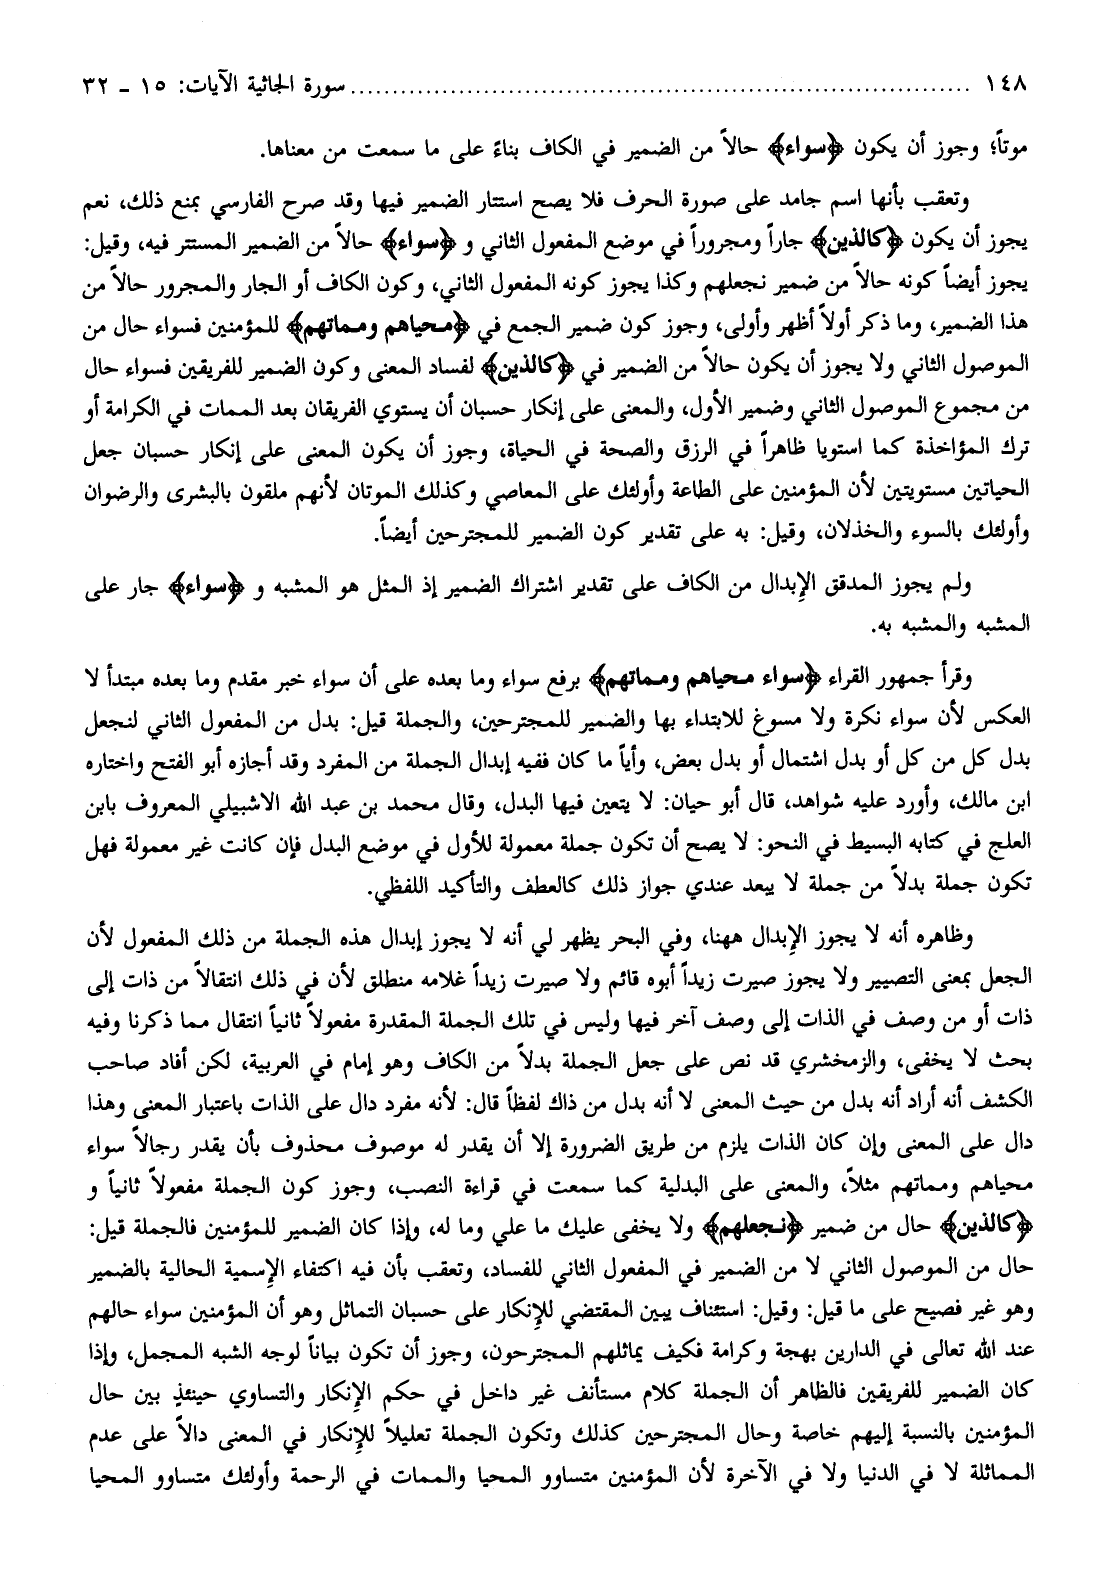 ١٤٨ ........................................................................... سورة الجاثية الآيات: ١٥ - ٣٢
موتاً؛ وجوز أن يكون ﴿سواء﴾ حالاً من الضمير في الكاف بناءً على ما سمعت من معناها.
وتعقب بأنها اسم جامد على صورة الحرف فلا يصح استتار الضمير فيها وقد صرح الفارسي بمنع ذلك، نعم
يجوز أن يكون ﴿كالذين﴾ جاراً ومجروراً في موضع المفعول الثاني و ﴿سواء﴾ حالاً من الضمير المستتر فيه، وقيل:
يجوز أيضاً كونه حالاً من ضمير نجعلهم وكذا يجوز كونه المفعول الثاني، وكون الكاف أو الجار والمجرور حالاً من
هذا الضمير، وما ذكر أولاً أظهر وأولى، وجوز كون ضمير الجمع في ﴿محياهم ومماتهم﴾ للمؤمنين فسواء حال من
الموصول الثاني ولا يجوز أن يكون حالاً من الضمير في ﴿كالذين﴾ لفساد المعنى وكون الضمير للفريقين فسواء حال
من مجموع الموصول الثاني وضمير الأول، والمعنى على إنكار حسبان أن يستوي الفريقان بعد الممات في الكرامة أو
ترك المؤاخذة كما استويا ظاهراً في الرزق والصحة في الحياة، وجوز أن يكون المعنى على إنكار حسبان جعل
الحياتين مستويتين لأن المؤمنين على الطاعة وأولئك على المعاصي وكذلك الموتان لأنهم ملقون بالبشرى والرضوان
وأولئك بالسوء والخذلان، وقيل: به على تقدير كون الضمير للمجترحين أيضاً.
ولم يجوز المدقق الإبدال من الكاف على تقدير اشتراك الضمير إذ المثل هو المشبه و ﴿سواء﴾ جار على
المشبه والمشبه به.
وقرأ جمهور القراء ﴿سواء محياهم ومماتهم﴾ برفع سواء وما بعده على أن سواء خبر مقدم وما بعده مبتدأ لا
العكس لأن سواء نكرة ولا مسوغ للابتداء بها والضمير للمجترحين، والجملة قيل: بدل من المفعول الثاني لنجعل
بدل كل من كل أو بدل اشتمال أو بدل بعض، وأياً ما كان ففيه إبدال الجملة من المفرد وقد أجازه أبو الفتح واختاره
ابن مالك، وأورد عليه شواهد، قال أبو حيان: لا يتعين فيها البدل، وقال محمد بن عبد الله الاشبيلي المعروف بابن
العلج في كتابه البسيط في النحو: لا يصح أن تكون جملة معمولة للأول في موضع البدل فإن كانت غير معمولة فهل
تكون جملة بدلاً من جملة لا يبعد عندي جواز ذلك كالعطف والتأكيد اللفظي.
وظاهره أنه لا يجوز الإبدال ههنا، وفي البحر يظهر لي أنه لا يجوز إبدال هذه الجملة من ذلك المفعول لأن
الجعل بمعنى التصيير ولا يجوز صيرت زيداً أبوه قائم ولا صيرت زيداً غلامه منطلق لأن في ذلك انتقالاً من ذات إلى
ذات أو من وصف في الذات إلى وصف آخر فيها وليس في تلك الجملة المقدرة مفعولاً ثانياً انتقال مما ذكرنا وفيه
بحث لا يخفى، والزمخشري قد نص على جعل الجملة بدلاً من الكاف وهو إمام في العربية، لكن أفاد صاحب
الكشف أنه أراد أنه بدل من حيث المعنى لا أنه بدل من ذاك لفظاً قال: لأنه مفرد دال على الذات باعتبار المعنى وهذا
دال على المعنى وإن كان الذات يلزم من طريق الضرورة إلا أن يقدر له موصوف محذوف بأن يقدر رجالاً سواء
محياهم ومماتهم مثلاً، والمعنى على البدلية كما سمعت في قراءة النصب، وجوز كون الجملة مفعولاً ثانياً و
﴿كالذين﴾ حال من ضمير ﴿نجعلهم﴾ ولا يخفى عليك ما علي وما له، وإذا كان الضمير للمؤمنين فالجملة قيل:
حال من الموصول الثاني لا من الضمير في المفعول الثاني للفساد، وتعقب بأن فيه اكتفاء الإسمية الحالية بالضمير
وهو غير فصيح على ما قيل: وقيل: استئناف يبين المقتضي للإنكار على حسبان التماثل وهو أن المؤمنين سواء حالهم
عند الله تعالى في الدارين بهجة وكرامة فكيف يماثلهم المجترحون، وجوز أن تكون بياناً لوجه الشبه المجمل، وإذا
كان الضمير للفريقين فالظاهر أن الجملة كلام مستأنف غير داخل في حكم الإنكار والتساوي حينئذٍ بين حال
المؤمنين بالنسبة إليهم خاصة وحال المجترحين كذلك وتكون الجملة تعليلاً للإنكار في المعنى دالاً على عدم
المماثلة لا في الدنيا ولا في الآخرة لأن المؤمنين متساوو المحيا والممات في الرحمة وأولئك متساوو المحيا